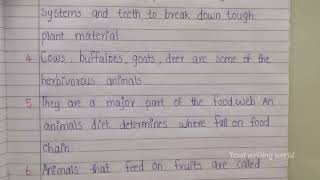 systems and teeth to break down tough
plant material
4 Cows, buffaloes, goats, deer are some of the
herbivorous animals
5 They are a major part of the food web An
animals diet determines where fall on food
chain
6 Animals that feed on fruits are called
writing world